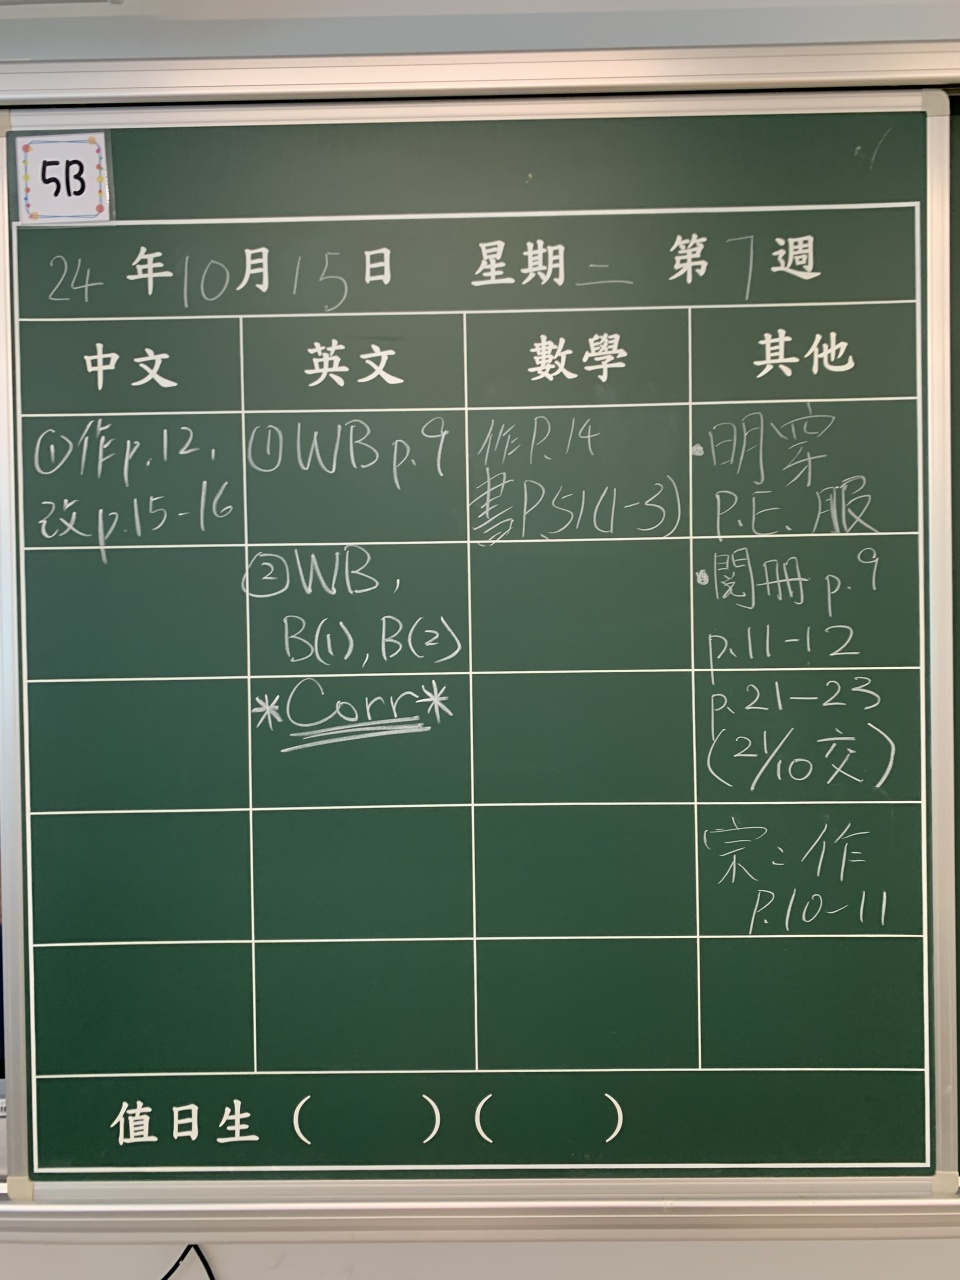 5B
24年10月15日 星期二 第7週
中文 英文 數學 其他
①作p.12,
改p.15-16
①WB p.9
②WB,
B(1), B(2)
*Corr*
作P.14
書P.51(1-3)
•明穿
P.E.服
•閱冊 p.9
p.11-12
p.21-23
(21/10交)
宗:作
P.10-11
值日生( )( )